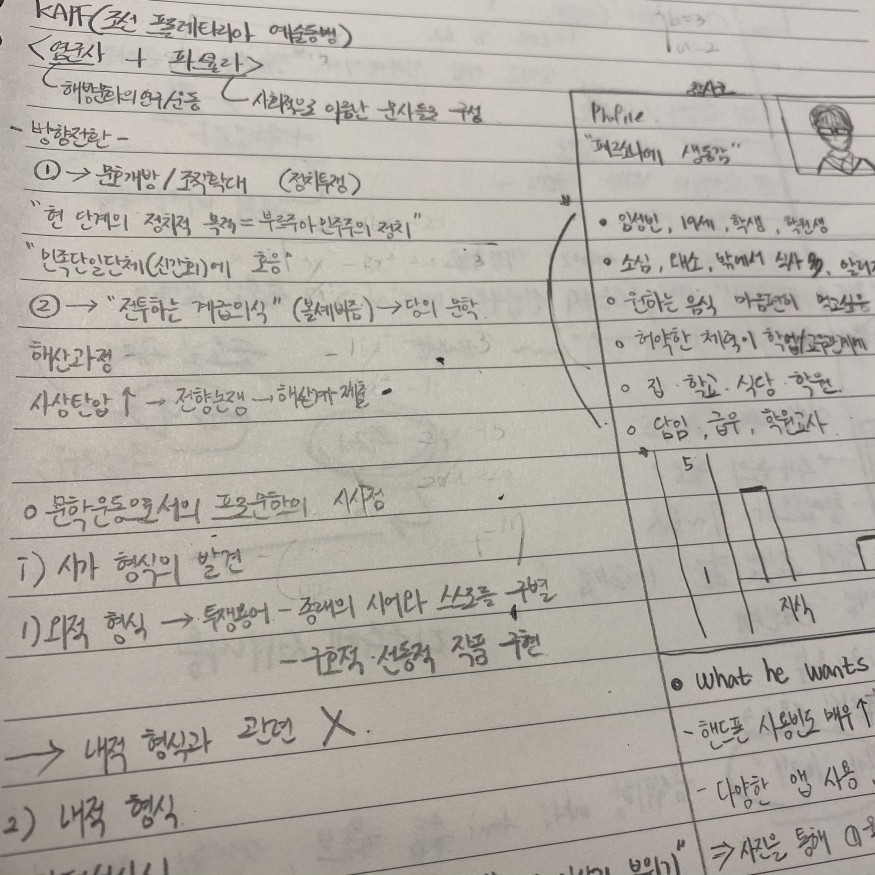 KAPF(조선 프롤레타리아 예술동맹)
<염군사 + 파스큘라>
해방문화의 연구/운동
사회적으로 이름난 문사들로 구성
- 방향전환 -
① → 문호개방/조직확대 (정치투쟁)
"현 단계의 정치적 목적 = 부르주아 민주주의 정치"
"민족단일단체(신간회)에 호응"
② → "전투하는 계급의식" (볼셰비즘) → 당의 문학
해산과정
사상탄압 ↑ → 전향논쟁 → 해산계 제출
○ 문학운동으로서의 프로문학의 시사점
I) 시가 형식의 발견
1) 외적 형식 → 투쟁용어 - 종래의 시어와 스스로를 구별
- 구호적·선동적 작품 구현
→ 내적 형식과 관련 X.
2) 내적 형식
Profile.
"페르소나에 생동감"
임성빈, 19세, 학생, 학원생
소심, 왜소, 밖에서 식사
원하는 음식 마음편히 먹고싶은
허약한 체력이 학업/교우관계에
집·학교·식당·학원.
담임, 급우, 학원교사
5
1
지식
what he wants
- 핸드폰 사용빈도 매우↑
- 다양한 앱 사용
⇒ 사진을 통해 ①